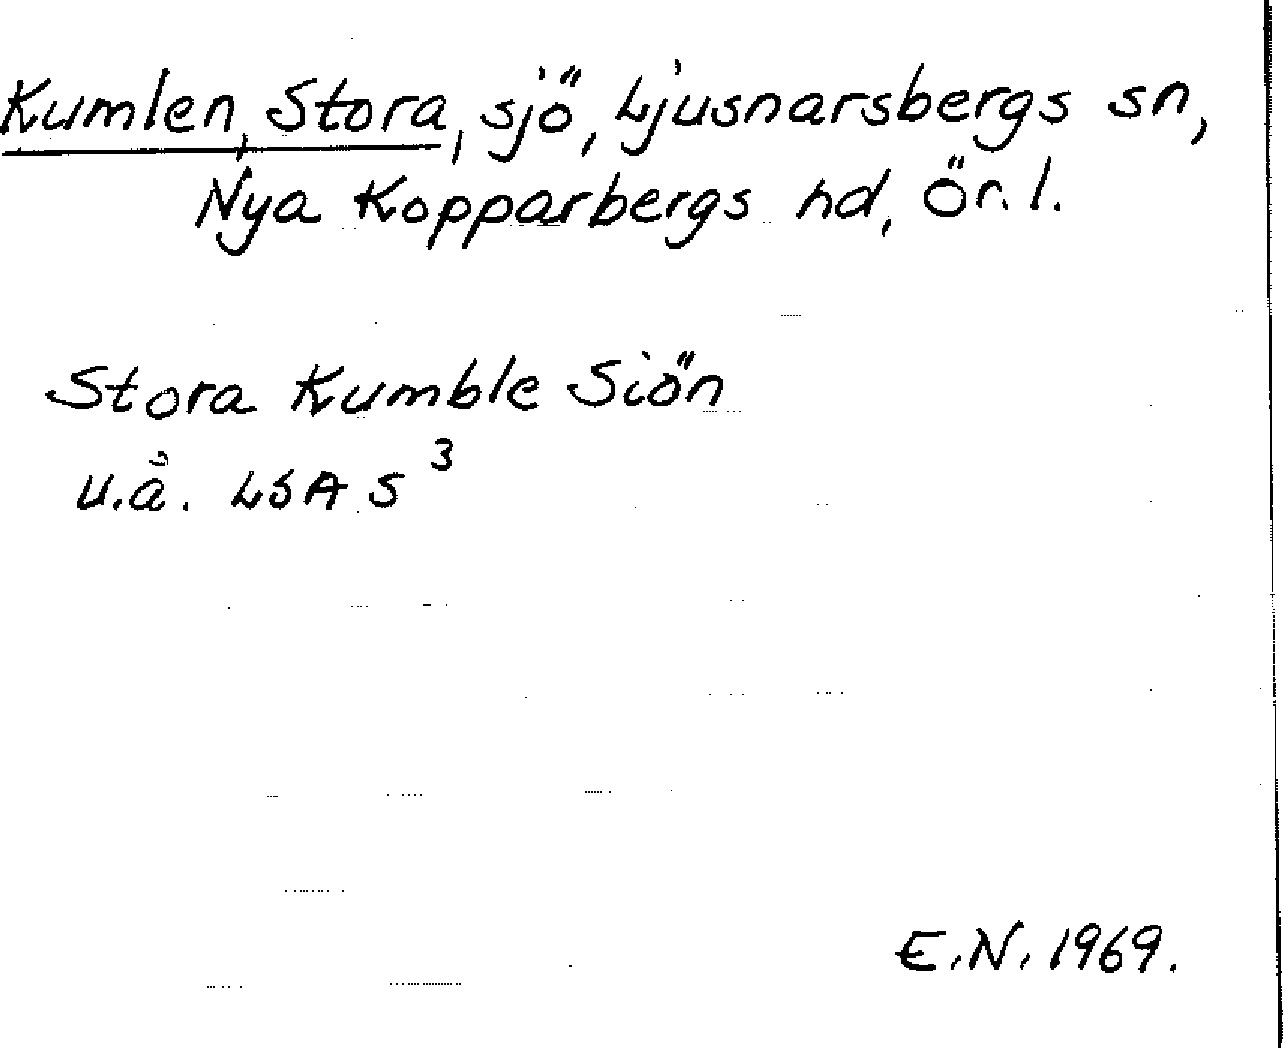 Kumlen, Stora, sjö, Ljusnarsbergs sn,
Nya Kopparbergs hd, Ör. l.
Stora Kumble Siön
u.å. LSA S³
E.N. 1969.